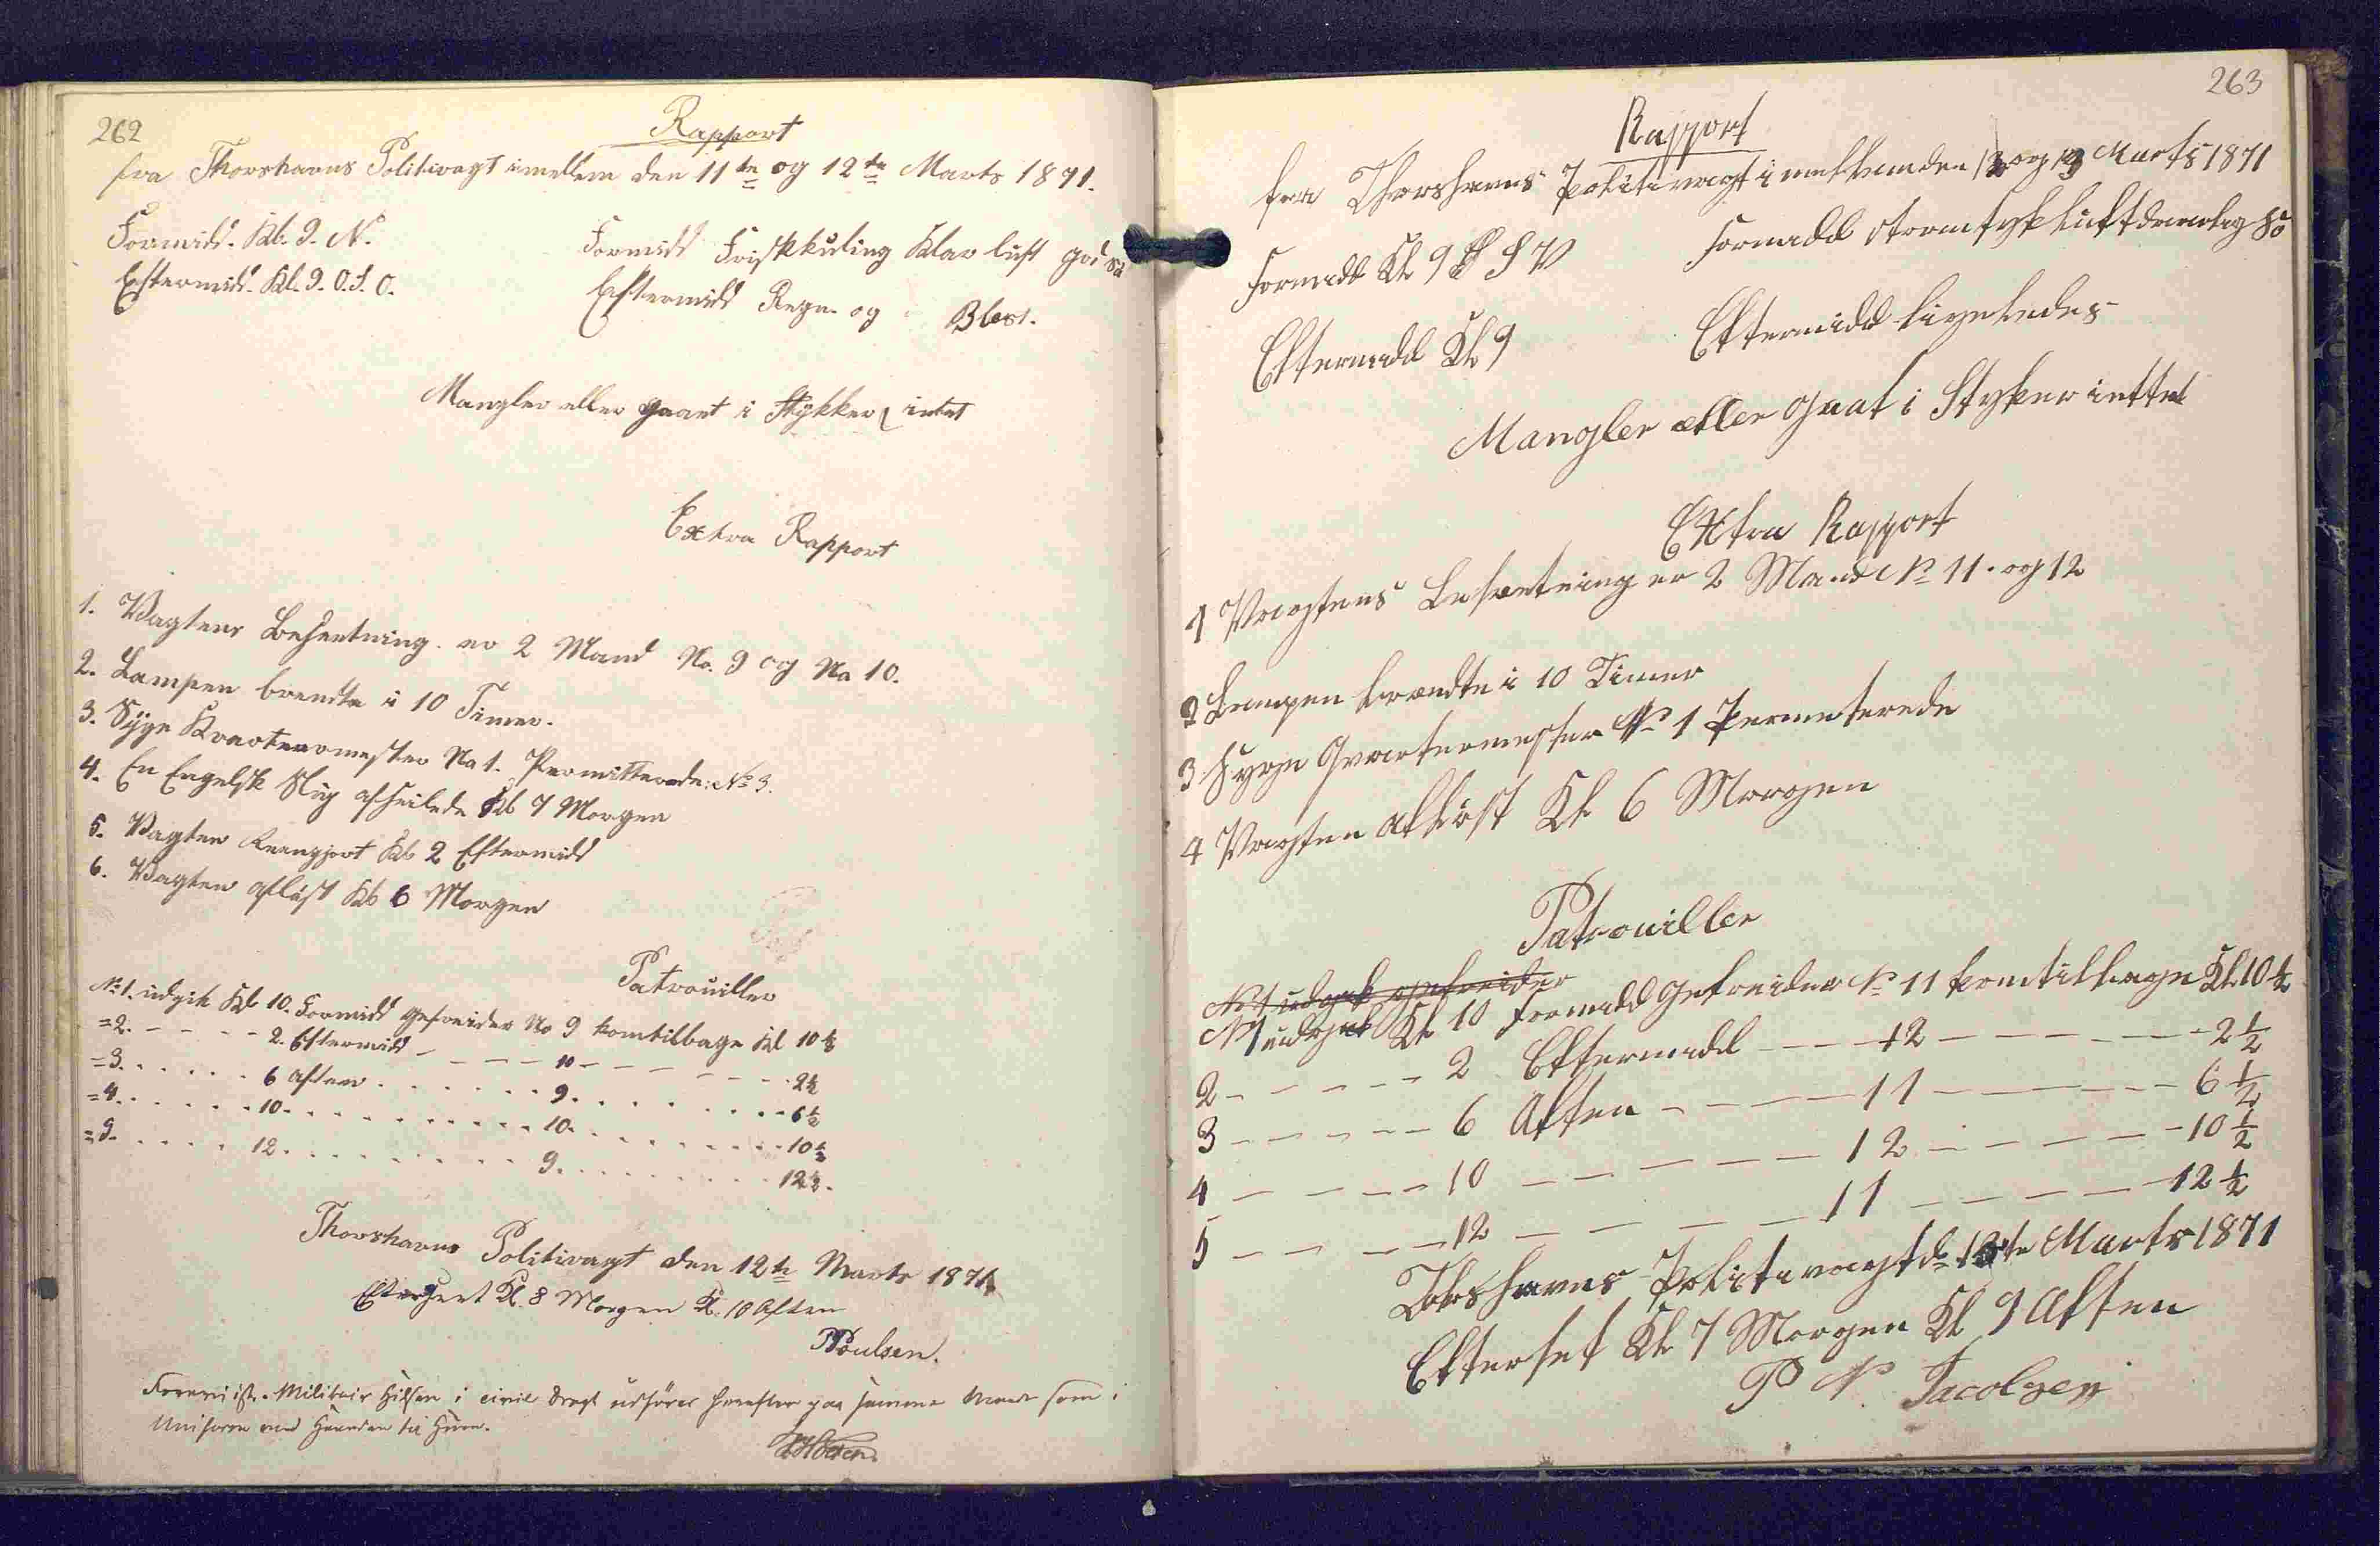 262
Rapport
fra Thorshavns Politivagt imellem den 11te og 12te Marts 1871.
Formidd. Kl. 9. N. Formidd Friskkuling Klar luft god Sö
Eftermidd. Kl. 9. O.S.O. Eftermidd Regn og Blest.
Mangler eller gaaet i Stykker, intet
Extra Rapport
1. Vagtens Besætning er 2 Mand No. 9 og No 10.
2. Lampen brendte i 10 Timer.
3. Syge Kvartermester No 1. Permitterede: No 3.
4. En Engelsk Slup afseilede Kl 7 Morgen
5. Vagten Reengjort Kl 2 Eftermidd
6. Vagten aflöst Kl 6 Morgen
Patrouiller
No 1. udgik Kl 10. Formidd Gefreider No 9 kom tilbage Kl 10½
=2. - - - - 2. Eftermidd - - - - 10 - - - - - - 2½
=3. . . . . . 6 Aften . . . . . . 9. . . . . . . . 6½
=4. . . . . . 10. . . . . . . . . . 10. . . . . . . . 10½
=5. . . . . 12. . . . . . . . . 9. . . . . . . . 12½.
Thorshavns Politivagt den 12te Marts 1871
Efterseet Kl. 8 Morgen Kl. 10 Aften
PPoulsen.
Militair Hilsen i civil Dragt udföres herefter paa samme Maade som i
Uniform med Haanden til Huen.
263
Rapport
fra Thorshavns Politivagt imellem den 12 og 13 Marts 1871
Formidd Kl 9 S V Formidd Storm tyk luft daarlig Sö
Eftermidd Kl 9 Eftermidd ligeledes
Mangler eller gaat i Styker inttet
Extra Rapport
1 Vagtens Besætning er 2 Mand No 11. og 12
2 Lampen brændte i 10 Timer
3 Syge Qvartermester No 1 Permeterede
4 Vagten aflöst Kl 6 Morgen
Patrouiller
No 1 udgik Gefreider
No 1 udgik Kl 10 Formidd Gefreider No 11 kom tilbage Kl 10½
2 - - - - - 2 Eftermidd - - - 12 - - - - - - 2½
3 - - - - - 6 Aften - - - - 11 - - - - - 6½
4 - - - - 10 - - - - - 12 - - - - - 10½
5 - - - - 12 - - - - - 11 - - - - - 12½
Thorshavns Politivagt d 13te Marts 1871
Efterset Kl 7 Morgen Kl 9 Aften
P N Jacobsen